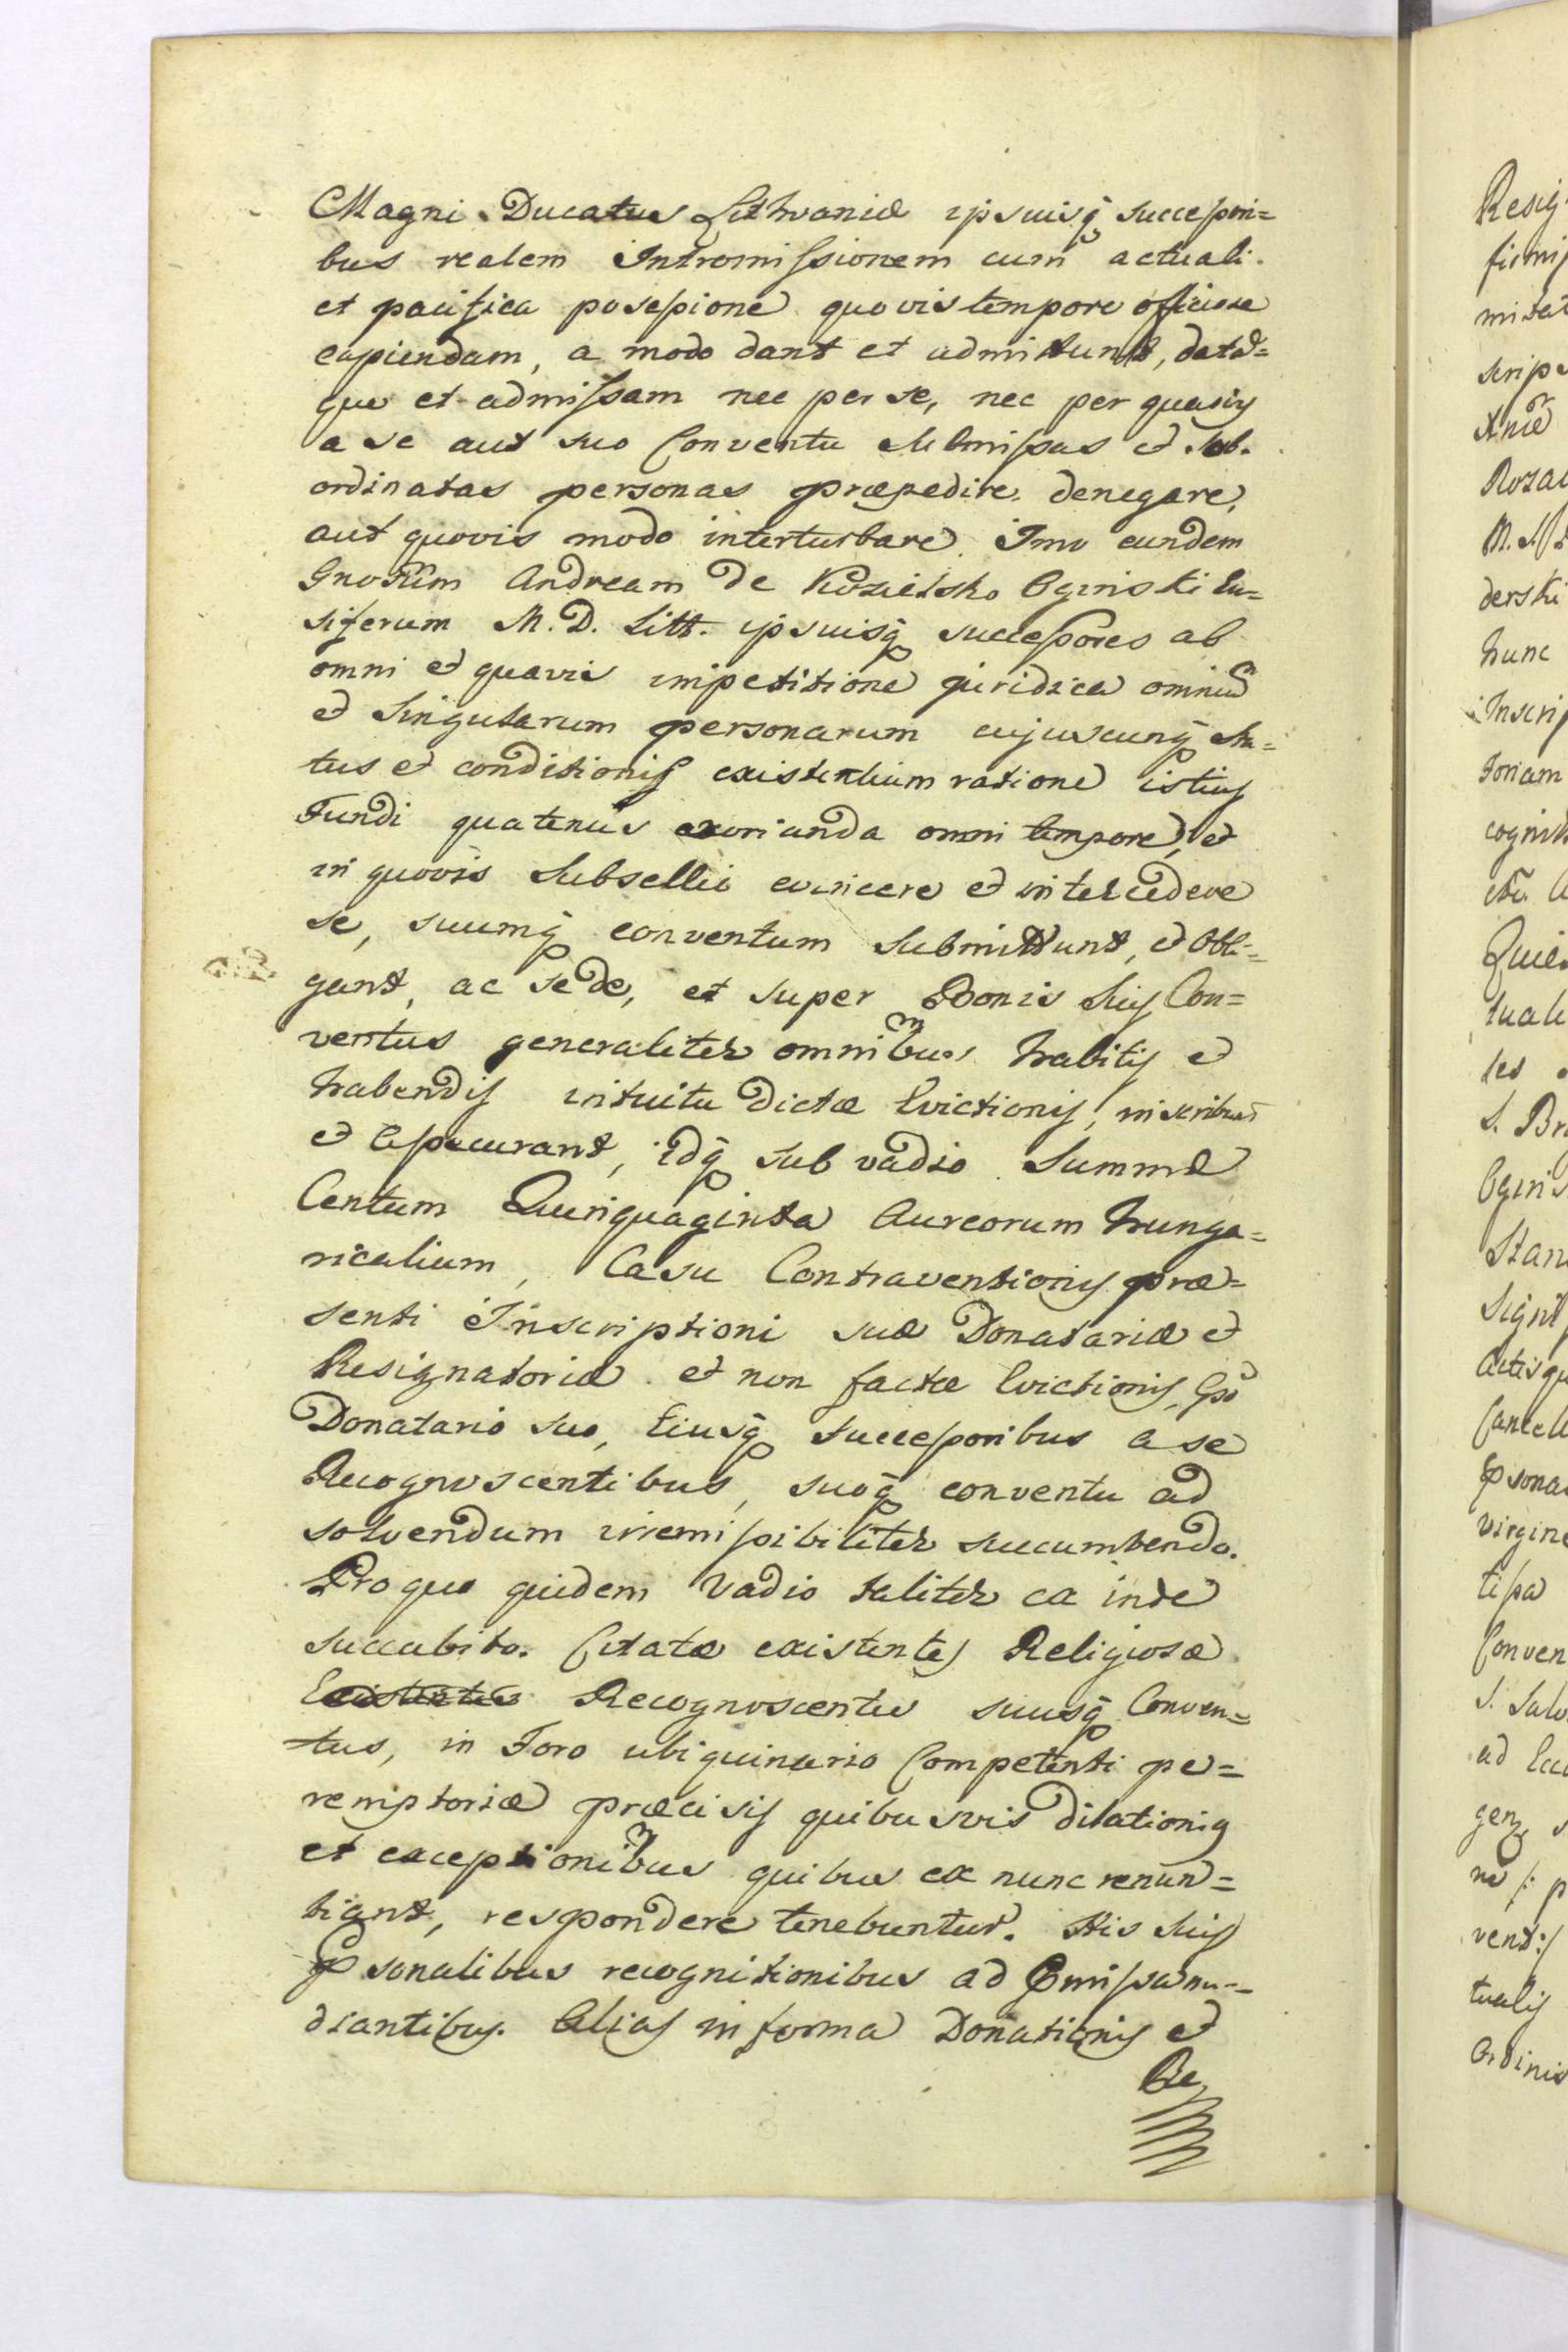 Magni Ducatus Lithvaniæ ipsuisq̃ successori=
bus realem Intromissionem cum actuali
et pacifica posessione quovis tempore officiose
capiendam, a modo dant et admittunt, datã=
que et admissam nec per se, nec per quasvis
a se aut suo Conventu submissas et sub.
ordinatas personas præpedire, denegare,
aut quovis modo interturbare. Imo eundem
Gnosum Andream De Kozielsko Oginski En=
siferum M. D. Litt. ipsuisq̃ successores ab
omni et quavis impetitione juridica omniũ
et singularum personarum cujuscunq̃ sta=
tus et conditionis existentium ratione istius
Fundi quatenus exorianda omni tempore, et
in quovis Subsellio evincere et intercedere
se, suumq̃ conventum submittunt, et obli=
gant, ac se de, et super Bonis suis Con=
ventus generaliter omnibus habitis et
habendis intuitu dictæ Evictionis, inscribunt
et assecurant, idq̃ sub vadio Summæ
Centum Quinquaginta Aureorum hunga=
ricalium, Casu Contraventionis præ=
senti Inscriptioni suæ Donatariæ et
Resignatoriæ et non factæ Evictionis, Gso
Donatario suo, Eiusq̃ successoribus a se
Recognoscentibus, suoq̃ conventu ad
solvendum irremissibiliter succumbendo.
Pro quo quidem Vadio taliter ex inde
succubito. Citatæ existentes Religiosæ
Existentes Recognoscentes suusq̃ Conven=
tus, in Foro ubiquinario Competenti pe=
remptoriæ præcisis quibusvis dilationig
et exceptionibus quibus ex nunc renun=
tiant, respondere tenebuntur. His suis
psonalibus recognitionibus ad pmissa me=
diantibus. Alias in forma Donationis et
Re
Resig
firmis
mitat
scrips
Roza
M. S
derski
hunc
Inscrip
toriam
cognit
tuali
S. Br
Ogins
Stan
Sign
Actis qu
Cancell
psona
virgine
tissa
Conven
S. Salv
ad Ecc
vent:/
tualis
Ordinis